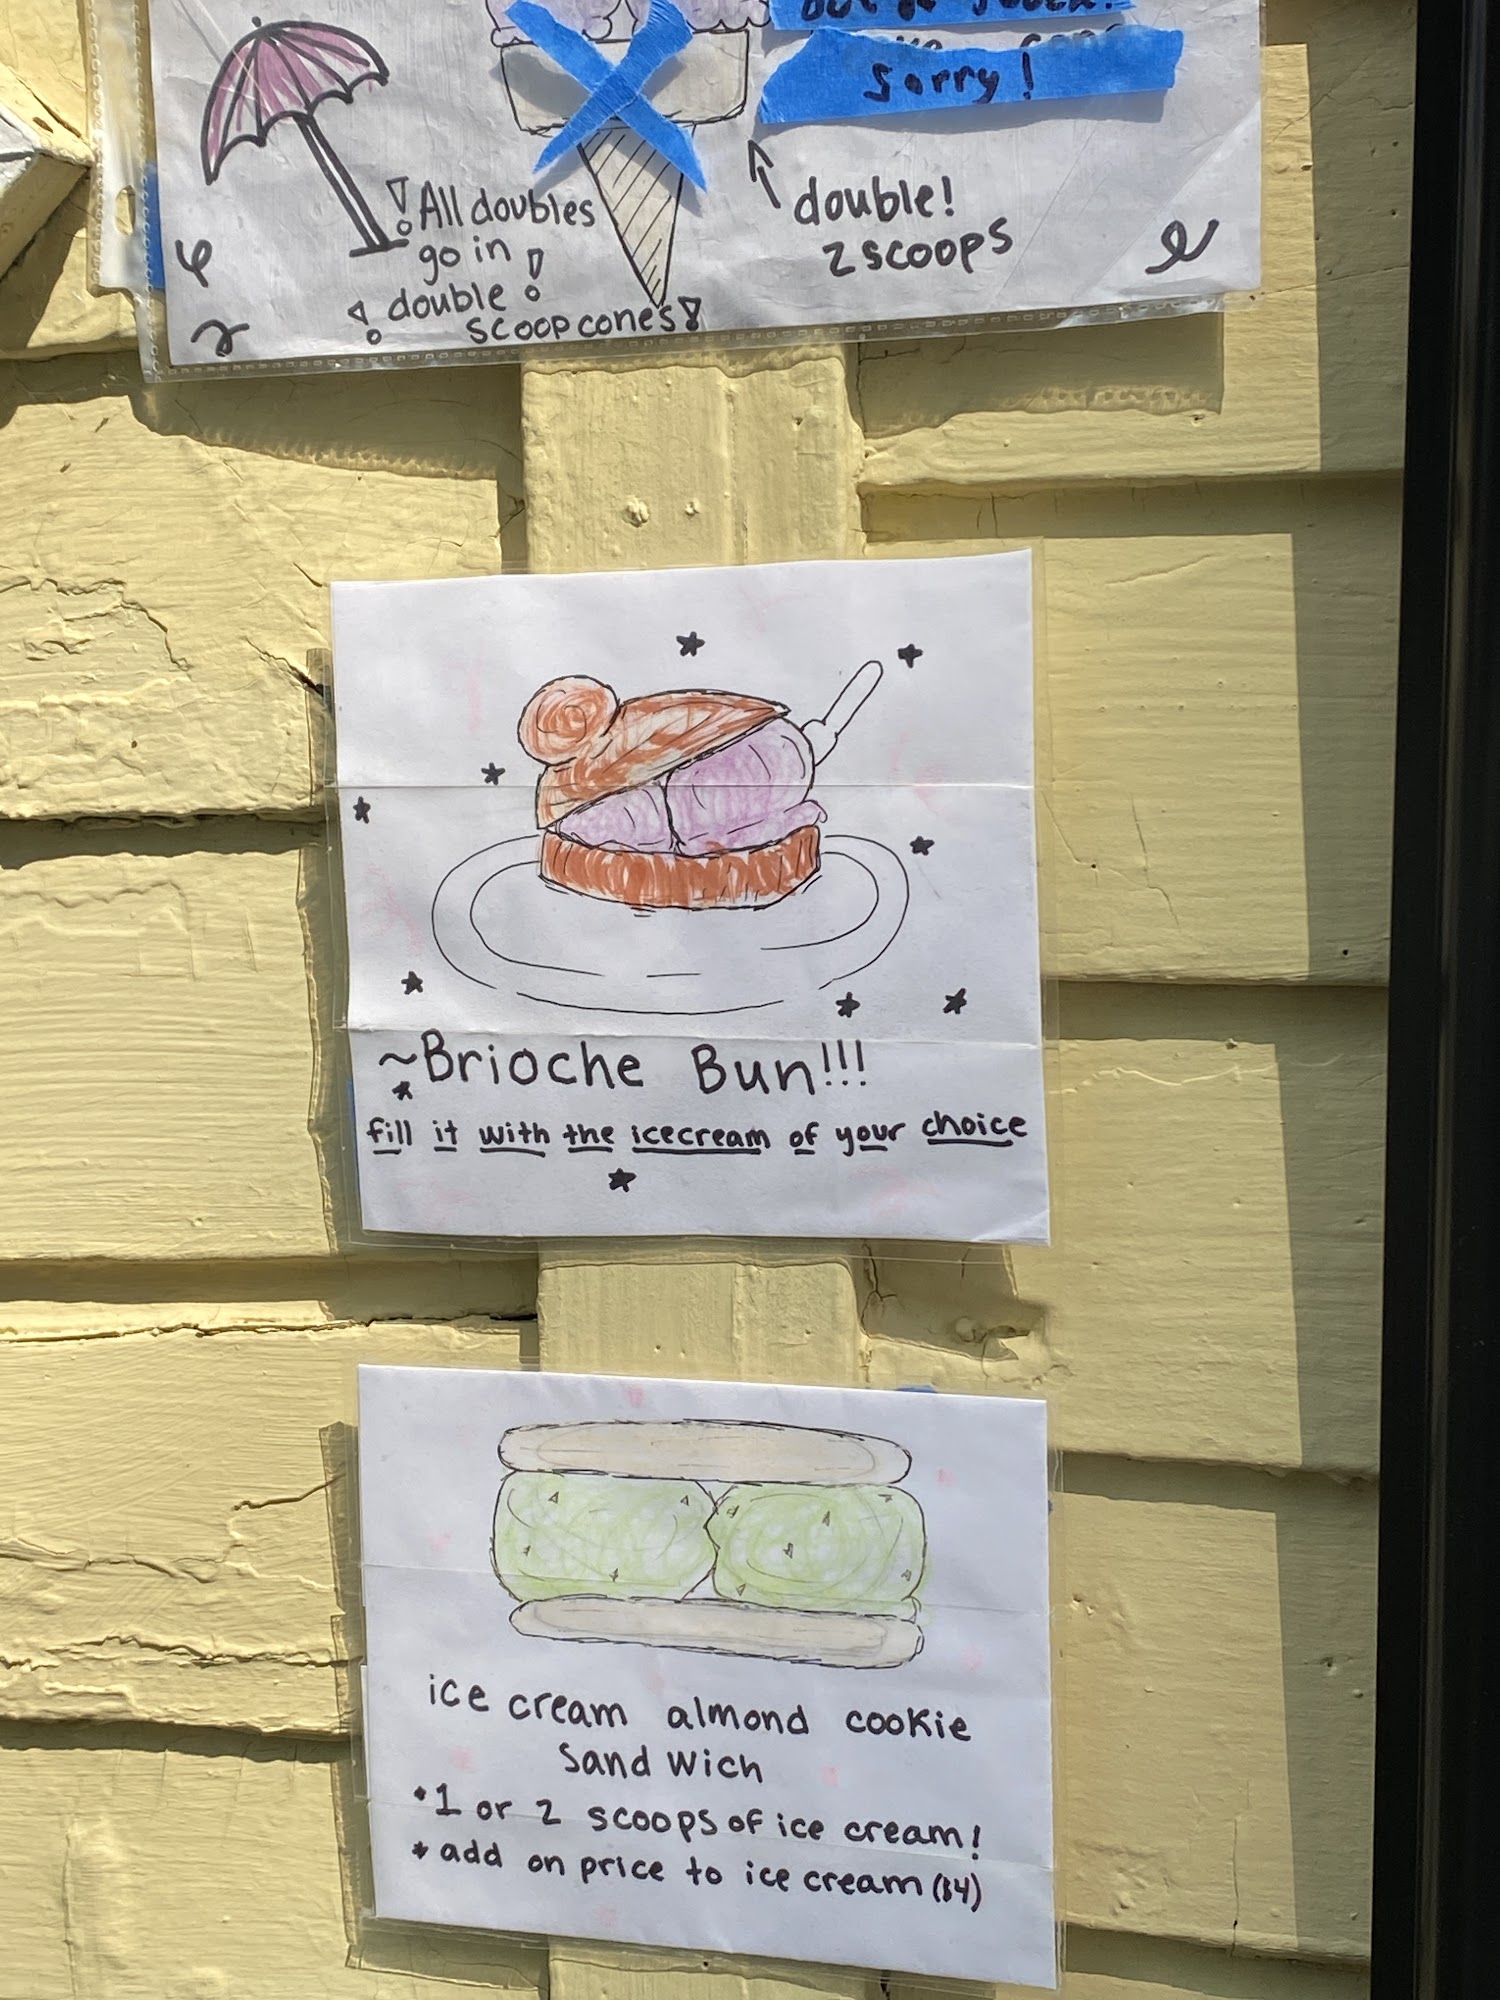 sorry!
! All doubles
go in !
! double
scoop cones!
double!
2 scoops
~Brioche Bun!!!
fill it with the icecream of your choice
ice cream almond cookie
sandwich
•1 or 2 scoops of ice cream!
* add on price to ice cream ($4)